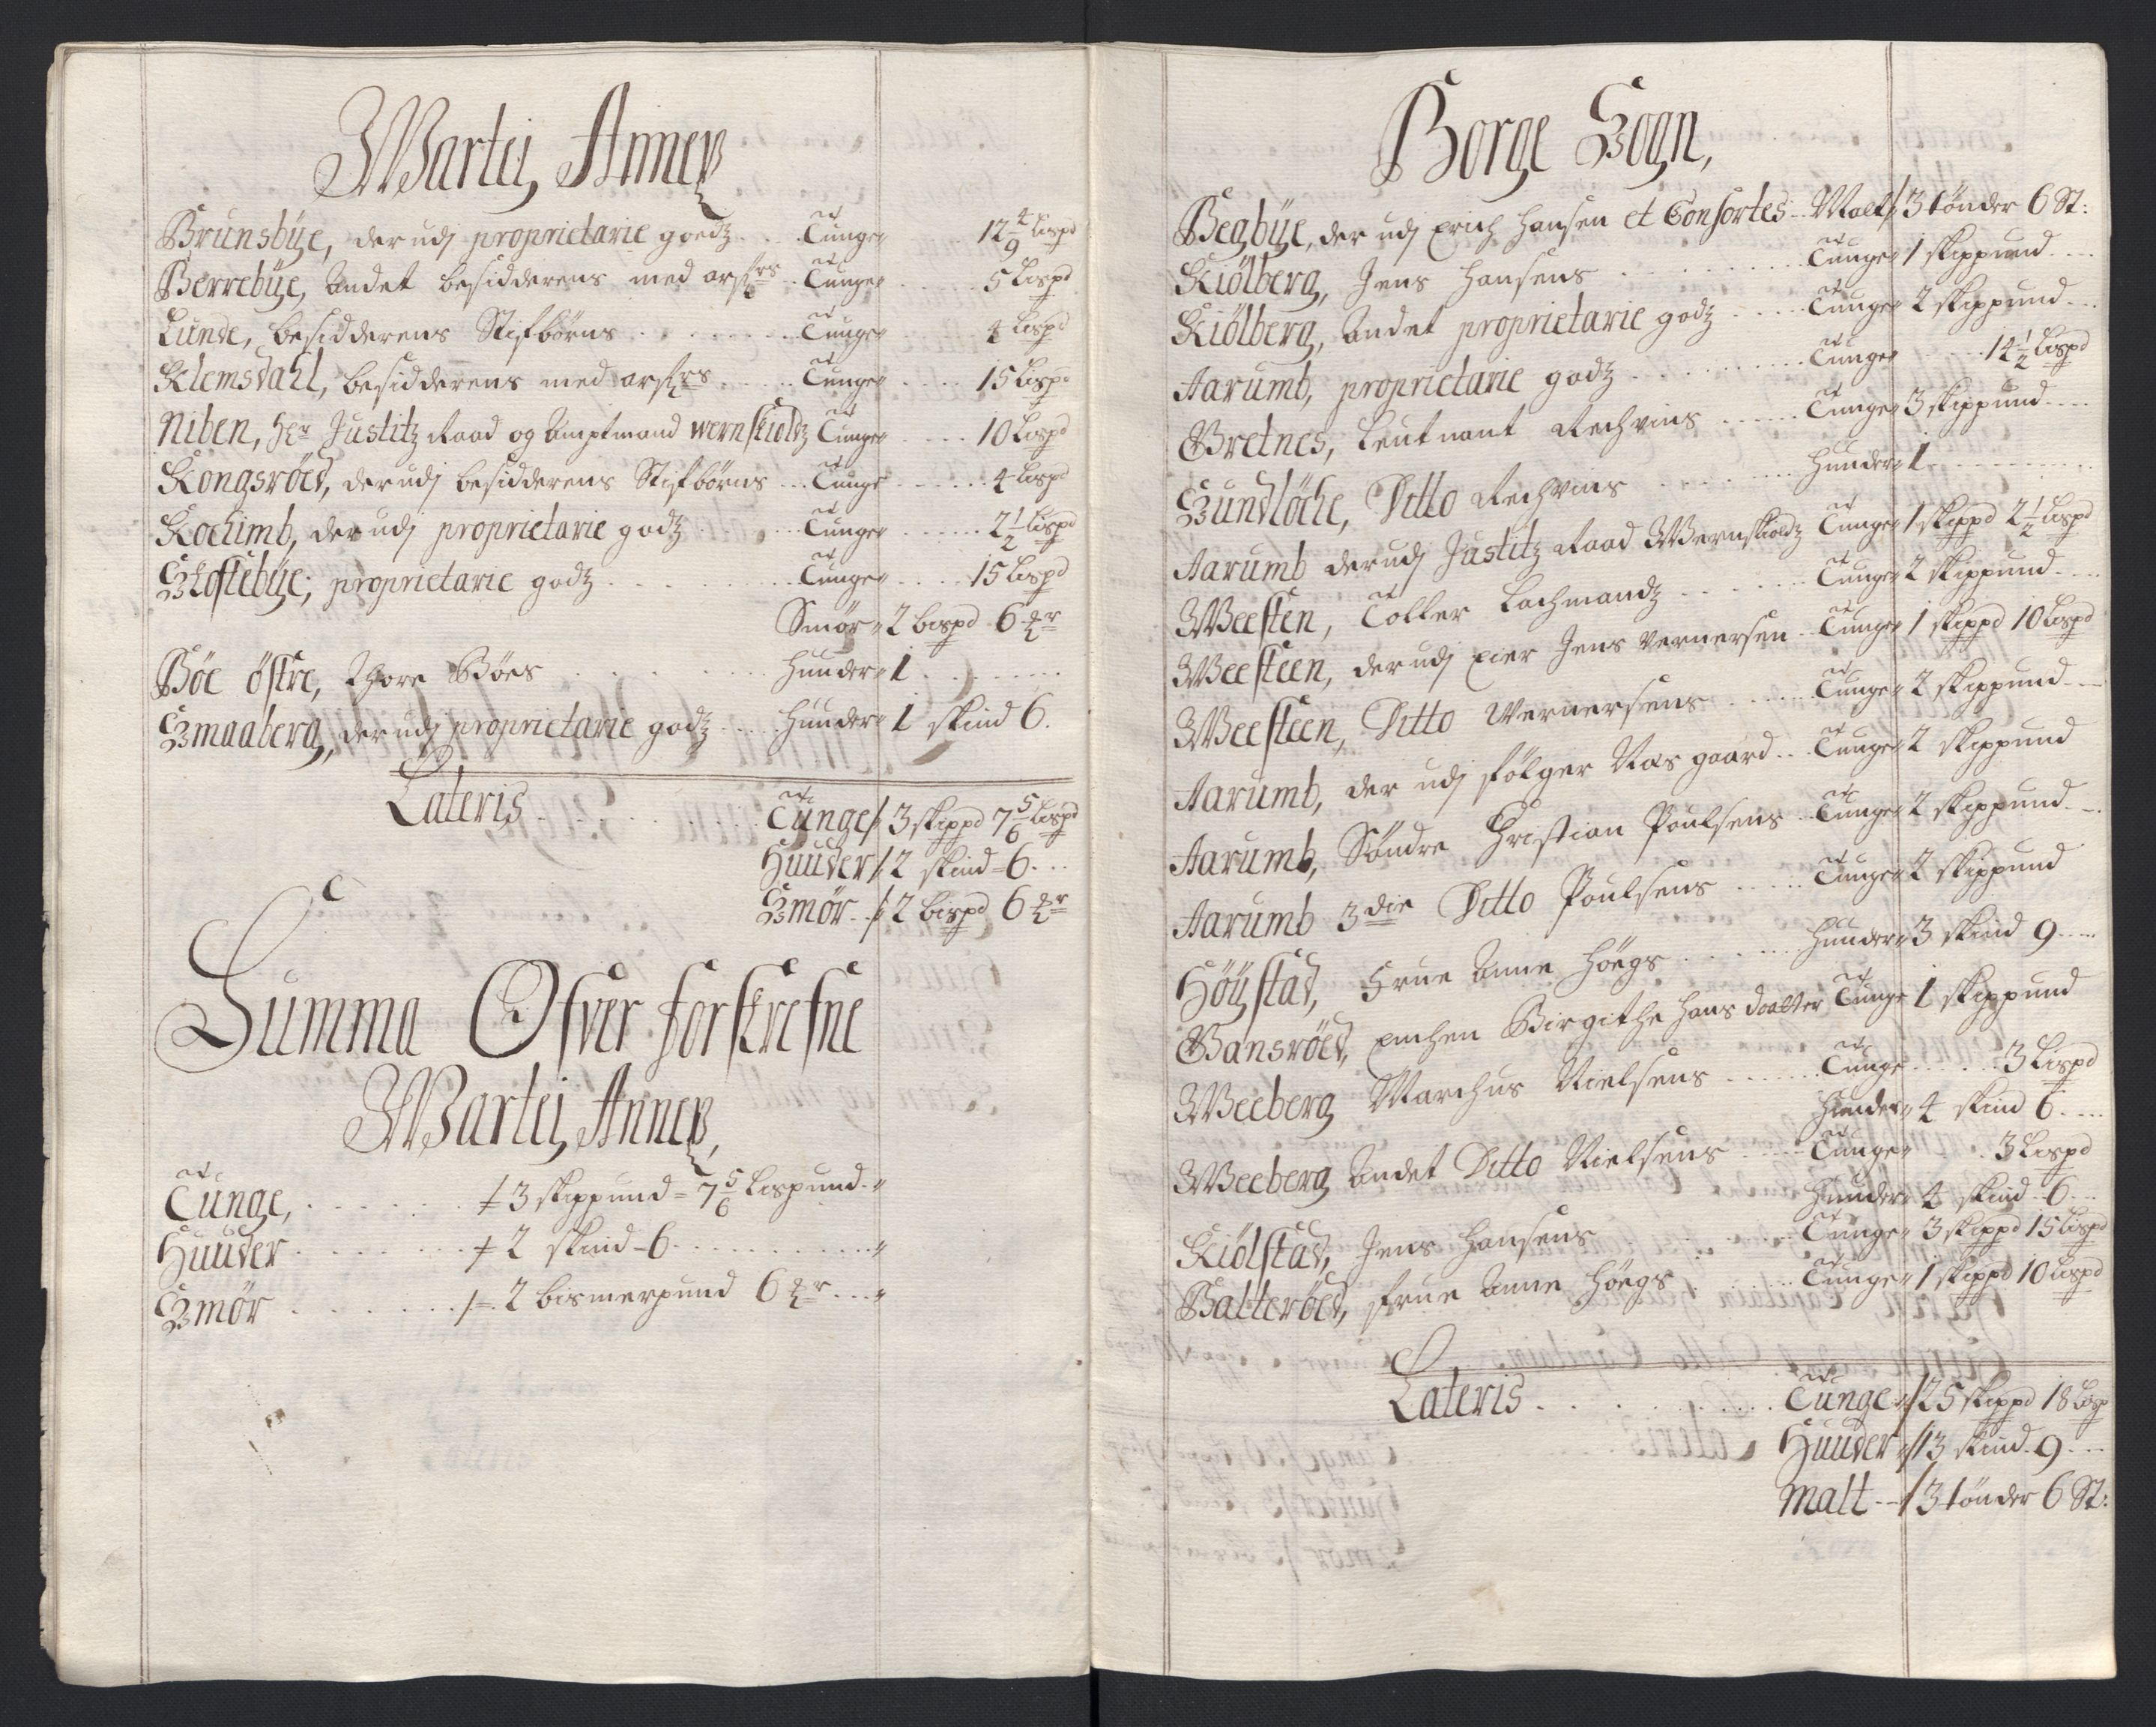 Martij Annex
Brunsbÿe, der udj proprietarie goedz .... Tunge 12 4/9 Lispd
Berrebÿe, Andet besidderens med arf: rs .. Tunge 5 Lispd
Lunde, besidderens Stifbørns ........ Tunge 4 Lispd
Klemsdahl, besidderens med arf: rs ..... Tunge .... 15 Lispd
Niben, Hr Justitz Raad og Amptmand Wernskioldz Tunge .... 10 Lispd
Kongsröed, der udj besidderens Stifbørns ... Tunge ...... 4 Lispd
Kochimb, der udj proprietarie godz .... Tunge ..... 2 1/2 Lispd
Skoftebÿe, proprietarie godz ........ Tunge .... 15 Lispd
Smør 2 bispd 6 mr
Böe östre, Thore Bøes ........ Huuder 1 ........
Smaaberg, der udj proprietarie godz .... Huuder 1 skind 6.
Lateris .......... Tunge 3 skippd 7 5/6 Lispd
Huuder 2 skind - 6 ...
Smör .. 2 bispd 6 mr
Summa Ofver forskrefne
Martij Annex,
Tunge, ....... 3 skippund = 7 5/6 Lispund
Huuder ........ 2 skind - 6 ...........
Smör ....... 2 bismerpund 6 mr ...
Borge Sogn,
Begbÿe, der udj Erich Hansen et Consortes .. Malt 3 tönder 6 St:
Kiölberg, Jens Hansens ......... Tunge 1 skippund ....
Kiölberg, Andet proprietarie godz ..... Tunge 2 skippund ...
Aarumb, proprietarie godz ......... Tunge ..... 14 1/2 Lispd
Bretnes, Leutnant Rechvins ..... Tunge 3 skippund ....
Sundlöche, Ditto Rechvins ....... Huuder 1 .........
Aarumb der udj Justitz Raad Wernskioldz Tunge 1 skippd 2 1/2 Lispd
Weesten, Toller Lachmandz ...... Tunge 2 skippund ....
Weesteen, der udj Eier Jens Vernersen .. Tunge 1 skippd 10 Lispd
Weesteen, Ditto Wernersens ..... Tunge 2 skippund ...
Aarumb, der udj følger Næs gaard .. Tunge 2 skippund
Aarumb, Söndre Christian Poulsens .. Tunge 2 skippund ...
Aarumb 3die Ditto Poulsens ..... Tunge 2 skippund
Höÿstad, Frue Anne Höegs ...... Huuder 3 skind 9 ....
Bansröed, Enchen Birgithe Hans daatter Tunge 1 skippund
Weeberg Marchus Nielsens ...... Tunge ..... 3 Lispd
Huuder 4 skind 6 ....
Weeberg Andet Ditto Nielsens ..... Tunge . 3 Lispd
Huuder 4 skind - 6 ...
Kiölstad, Jens Hansens ....... Tunge 3 skippd 15 Lispd
Balteröed, Frue Anne Höegs ...... Tunge 1 skippd 10 Lispd
Lateris .......... Tunge 25 skippd 18 Lisp
Huuder 13 skind - 9 ...
Malt -- 3 tönder 6 St: